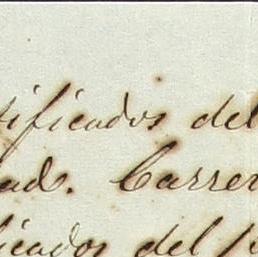 tificados del
ad. Carrer
icados del p